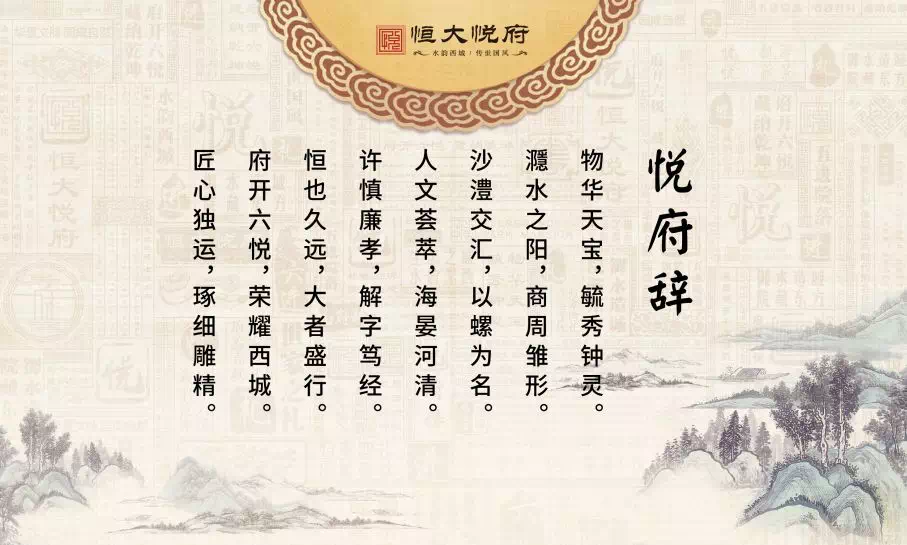 恒大悦府
水韵西城·传世国风
悦府辞
物华天宝，毓秀钟灵。
濦水之阳，商周雏形。
沙澧交汇，以螺为名。
人文荟萃，海晏河清。
许慎廉孝，解字笃经。
恒也久远，大者盛行。
府开六悦，荣耀西城。
匠心独运，琢细雕精。